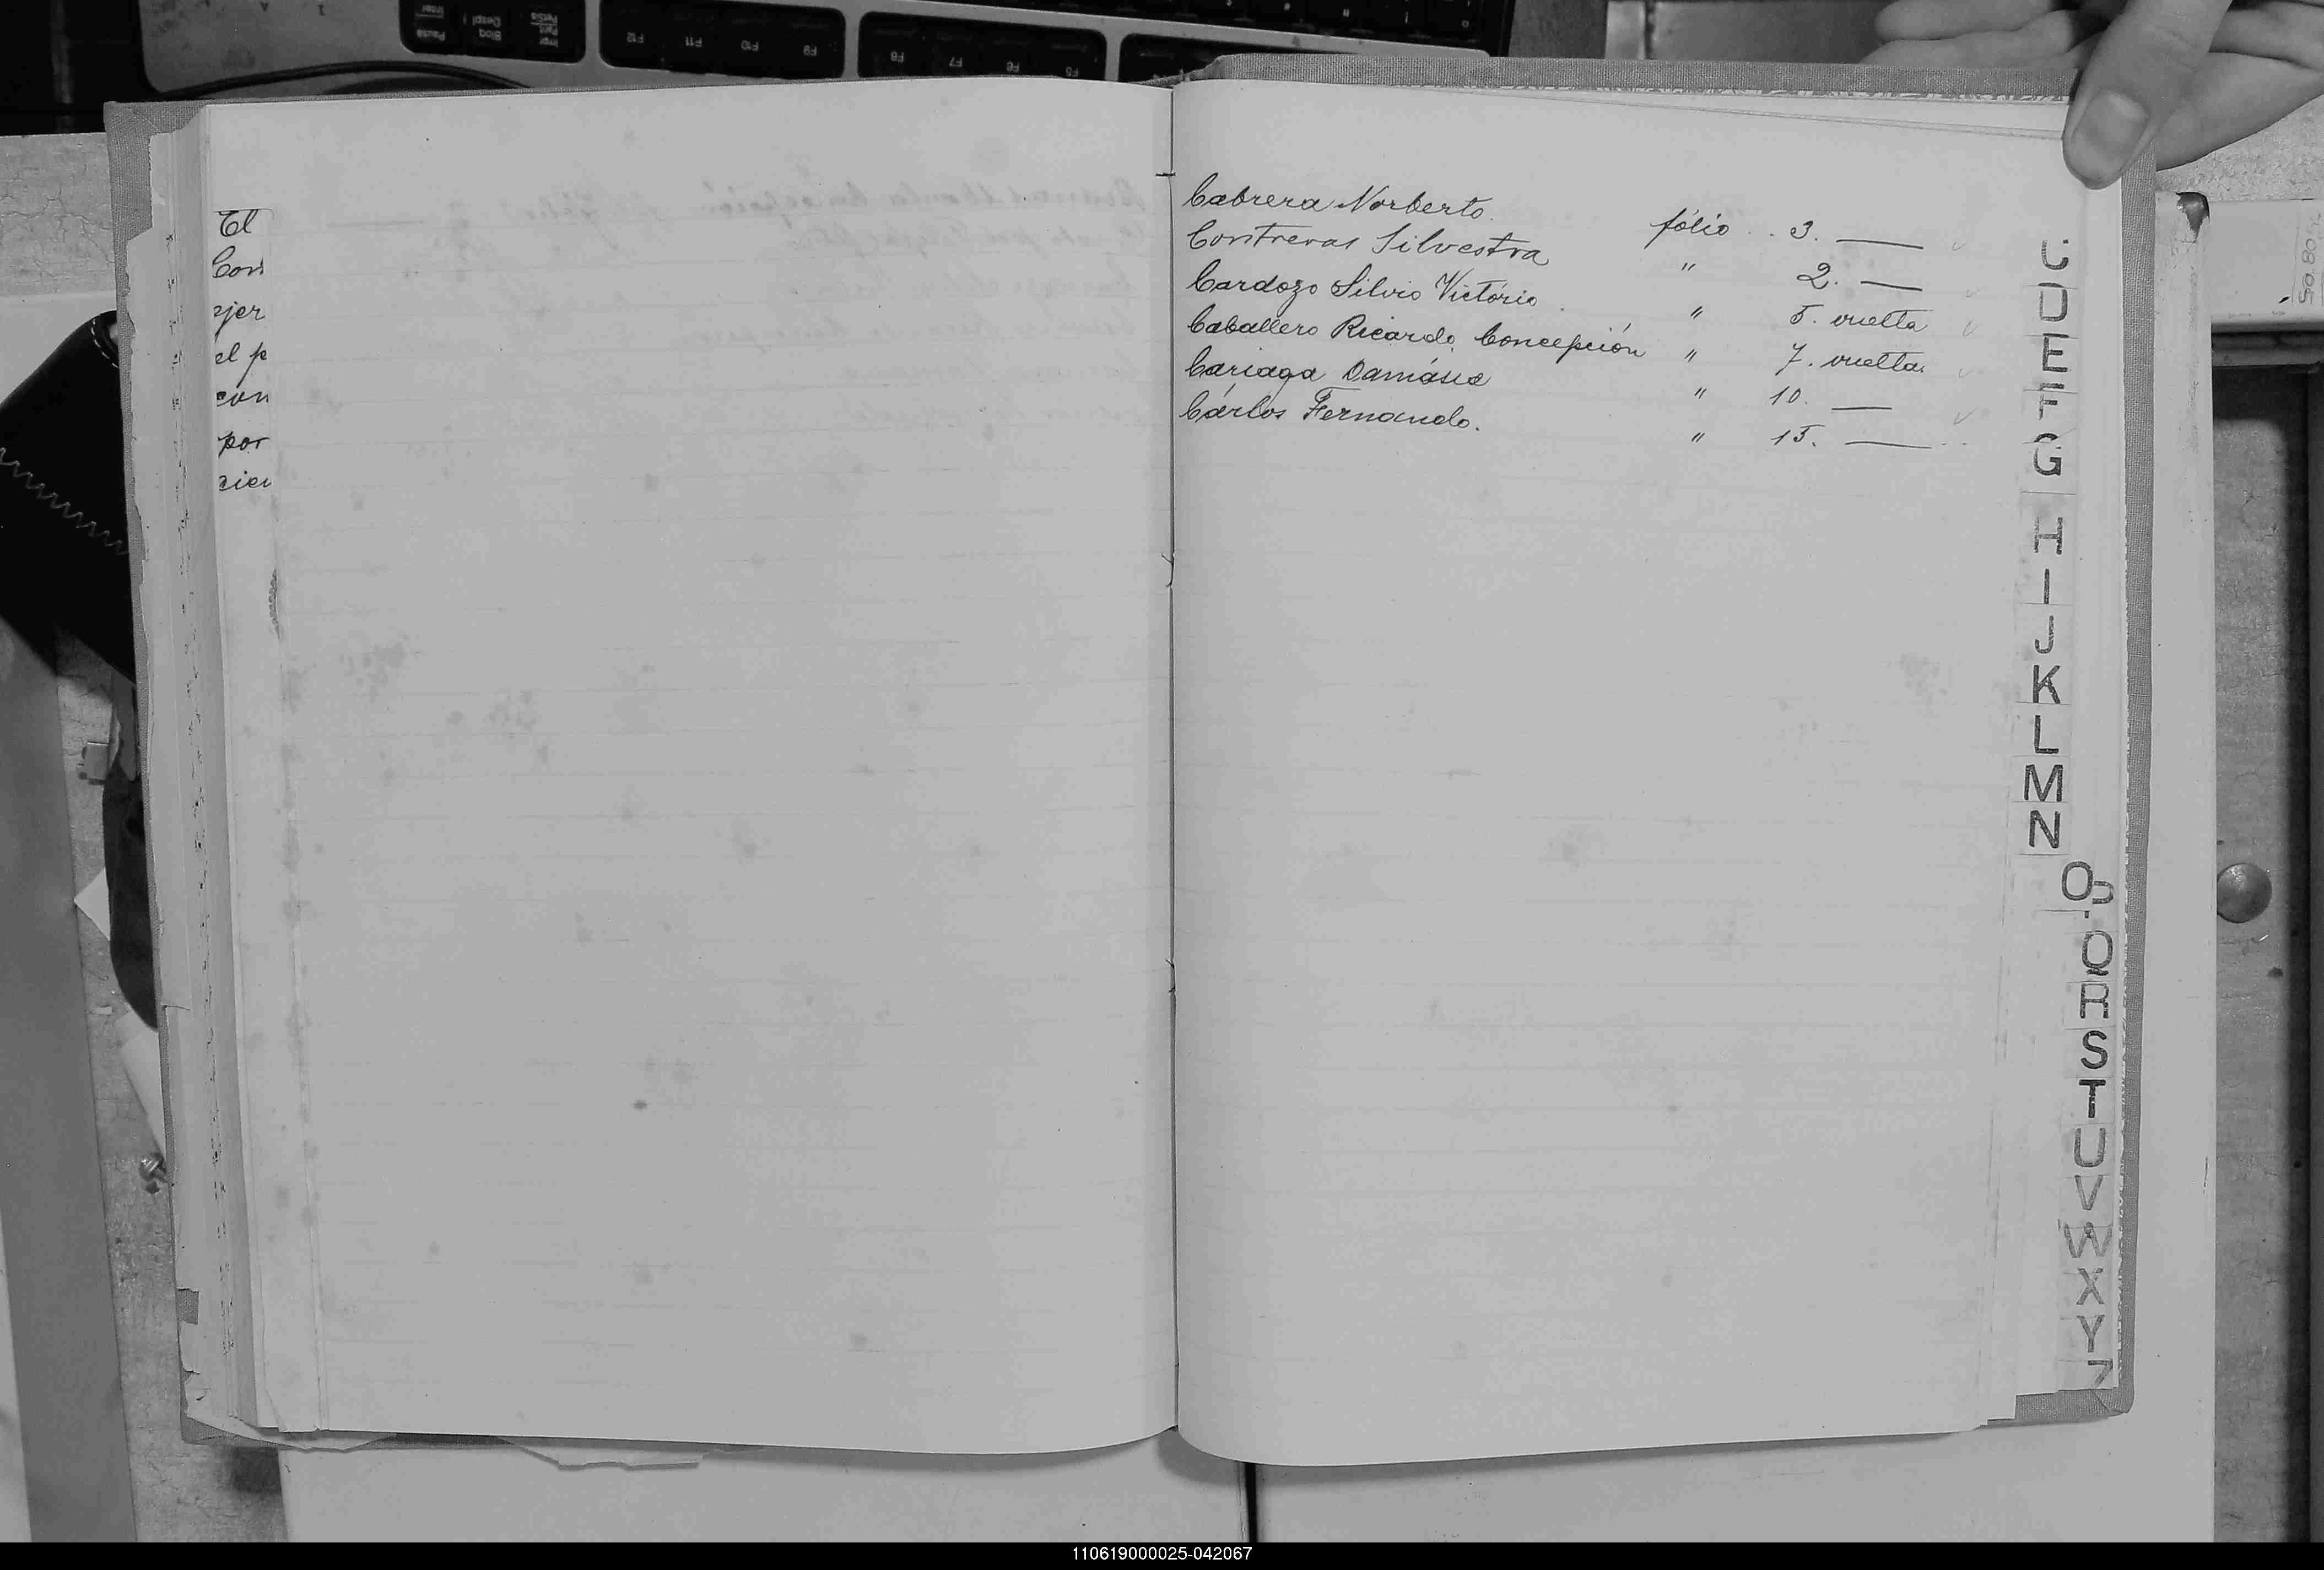 El
Con
ejer
el p
con
por
cien
Cabrera Norberto. fólio . . 3. —
Contreras Silvestra " 2. —
Cardozo Silvio Victório . " 5. vuelta
Caballero Ricardo Concepción " 7. vuelta.
Cariaga Damásia " 10. —
Cárlos Fernando. " 15. —
C
D
E
F
G
H
I
J
K
L
M
N
O
P
Q
R
S
T
U
V
W
X
Y
Z
F12 F11 F10 F9 F8 F7 F6 F5
110619000025-042067